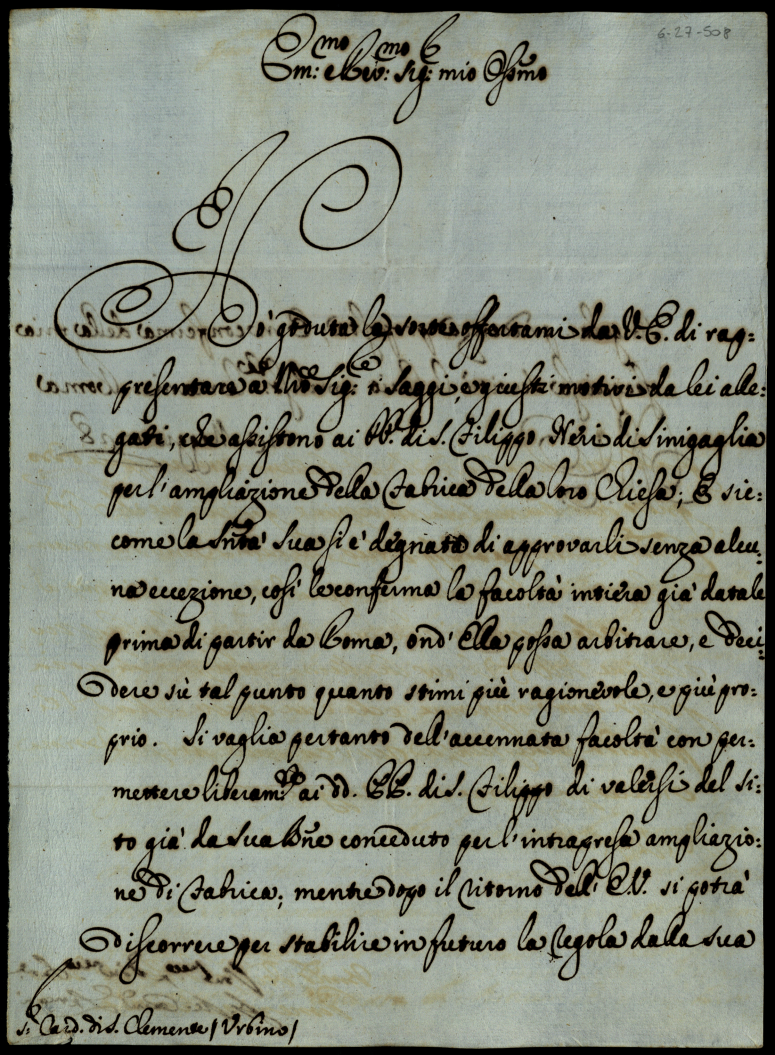 6-27-508
Em:mo e Rev:mo Sig: mio Ossmo
Hò goduta la sorte offertami da V. E. di rap=
presentare à N̄ro Sig:re i saggi, e giusti motivi da lei alle=
gati, che assistono ai PP. di S. Filippo Neri di Sinigaglia
per l'ampliazione della Fabrica della loro Chiesa; E sic=
come la Sntà Sua si è degnata di approvarli senza alcu=
na eccezione, così le conferma la facoltà intiera già datale
prima di partir da Roma, ond' Ella possa arbitrare, e deci=
dere sù tal punto quanto stimi più ragionevole, e più pro=
prio. Si vaglia pertanto dell'accennata facoltà con per=
mettere liberam:te ai dd. PP. di S. Filippo di valersi del si=
to già da Sua Bne conceduto per l'intrapresa ampliazio=
ne di Fabrica; mentre dopo il ritorno dell' E.V. si potrà
discorrere per stabilire in futuro la regola dalla sua
S.r Card. di S. Clemente / Urbino /